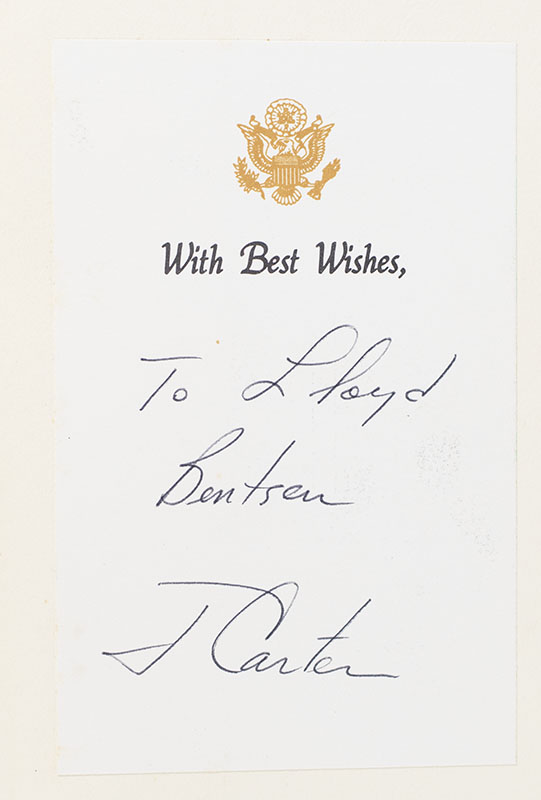 With Best Wishes,
To Lloyd
Bentsen
J Carter